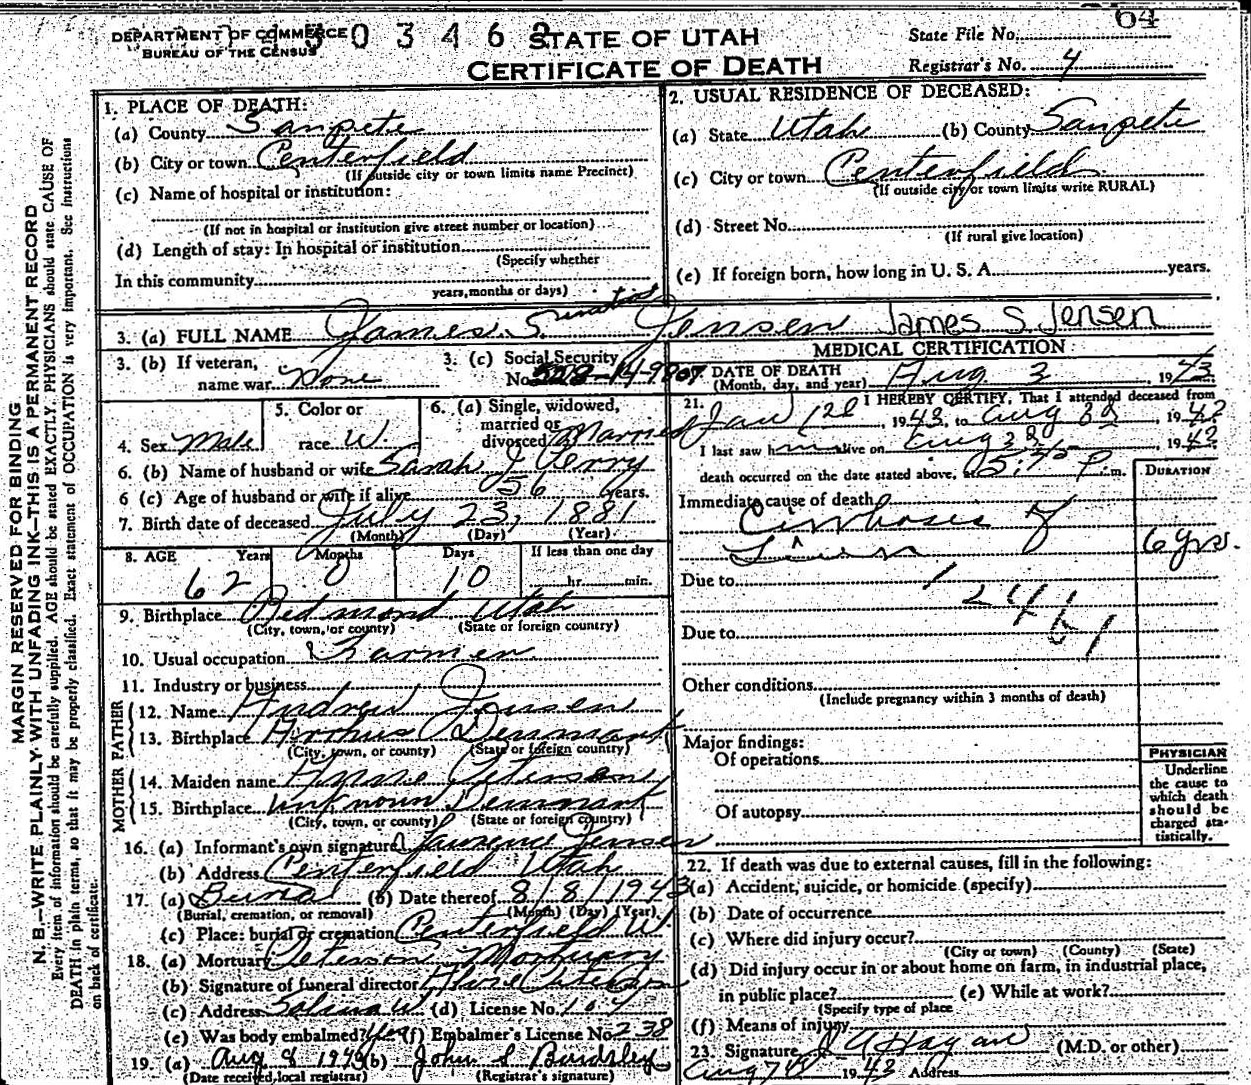 64
DEPARTMENT OF COMMERCE
BUREAU OF THE CENSUS
STATE OF UTAH
CERTIFICATE OF DEATH
State File No.
Registrar's No. 4
MARGIN RESERVED FOR BINDING
N. B.—WRITE PLAINLY WITH UNFADING INK—THIS IS A PERMANENT RECORD
Every item of information should be carefully supplied. AGE should be stated EXACTLY. PHYSICIANS should state CAUSE OF
DEATH in plain terms, so that it may be properly classified. Exact statement of OCCUPATION is very important. See instructions
on back of certificate.
1. PLACE OF DEATH:
(a) County Sanpete
(b) City or town Centerfield
(If outside city or town limits name Precinct)
(c) Name of hospital or institution:
(If not in hospital or institution give street number or location)
(d) Length of stay: In hospital or institution
(Specify whether
In this community
years, months or days)
2. USUAL RESIDENCE OF DECEASED:
(a) State Utah (b) County Sanpete
(c) City or town Centerfield
(If outside city or town limits write RURAL)
(d) Street No.
(If rural give location)
(e) If foreign born, how long in U. S. A. years.
3. (a) FULL NAME James S. Jensen James S. Jensen
3. (b) If veteran,
name war None
3. (c) Social Security
No.
4. Sex Male
5. Color or
race W.
6. (a) Single, widowed,
married or
divorced Married
6. (b) Name of husband or wife Sarah J Perry
6 (c) Age of husband or wife if alive 56 years.
7. Birth date of deceased July 23, 1881
(Month) (Day) (Year)
8. AGE Years Months Days If less than one day
62 0 10 hr. min.
9. Birthplace Redmond Utah
(City, town, or county) (State or foreign country)
10. Usual occupation Farmer
11. Industry or business
FATHER
12. Name Andrew Jensen
13. Birthplace Denmark
(City, town, or county) (State or foreign country)
MOTHER
14. Maiden name Peterson
15. Birthplace Unknown Denmark
(City, town, or county) (State or foreign country)
16. (a) Informant's own signature Jensen
(b) Address Centerfield Utah
17. (a) Burial (b) Date thereof 8/8/1943
(Burial, cremation, or removal) (Month) (Day) (Year)
(c) Place: burial or cremation Centerfield U.
18. (a) Mortuary Peterson Mortuary
(b) Signature of funeral director
(c) Address Salina U. (d) License No. 104
(e) Was body embalmed? Yes (f) Embalmer's License No. 238
19. (a) Aug 8 1943 (b) John S. Bardsley
(Date received local registrar) (Registrar's signature)
MEDICAL CERTIFICATION
20. DATE OF DEATH
(Month, day, and year) Aug 3, 1943
21. I HEREBY CERTIFY, That I attended deceased from
Jan 1st, 1943, to Aug 3d, 1943
I last saw him alive on Aug 3d 1943
death occurred on the date stated above, at P. m.
DURATION
Immediate cause of death
Cirrhosis of
Liver 6 yrs.
Due to
1246 1
Due to
Other conditions
(Include pregnancy within 3 months of death)
Major findings:
Of operations
Of autopsy
PHYSICIAN
Underline
the cause to
which death
should be
charged sta-
tistically.
22. If death was due to external causes, fill in the following:
(a) Accident, suicide, or homicide (specify)
(b) Date of occurrence
(c) Where did injury occur?
(City or town) (County) (State)
(d) Did injury occur in or about home on farm, in industrial place,
in public place? (e) While at work?
(Specify type of place
(f) Means of injury
23. Signature Hagan (M.D. or other)
Aug 7 1943 Address